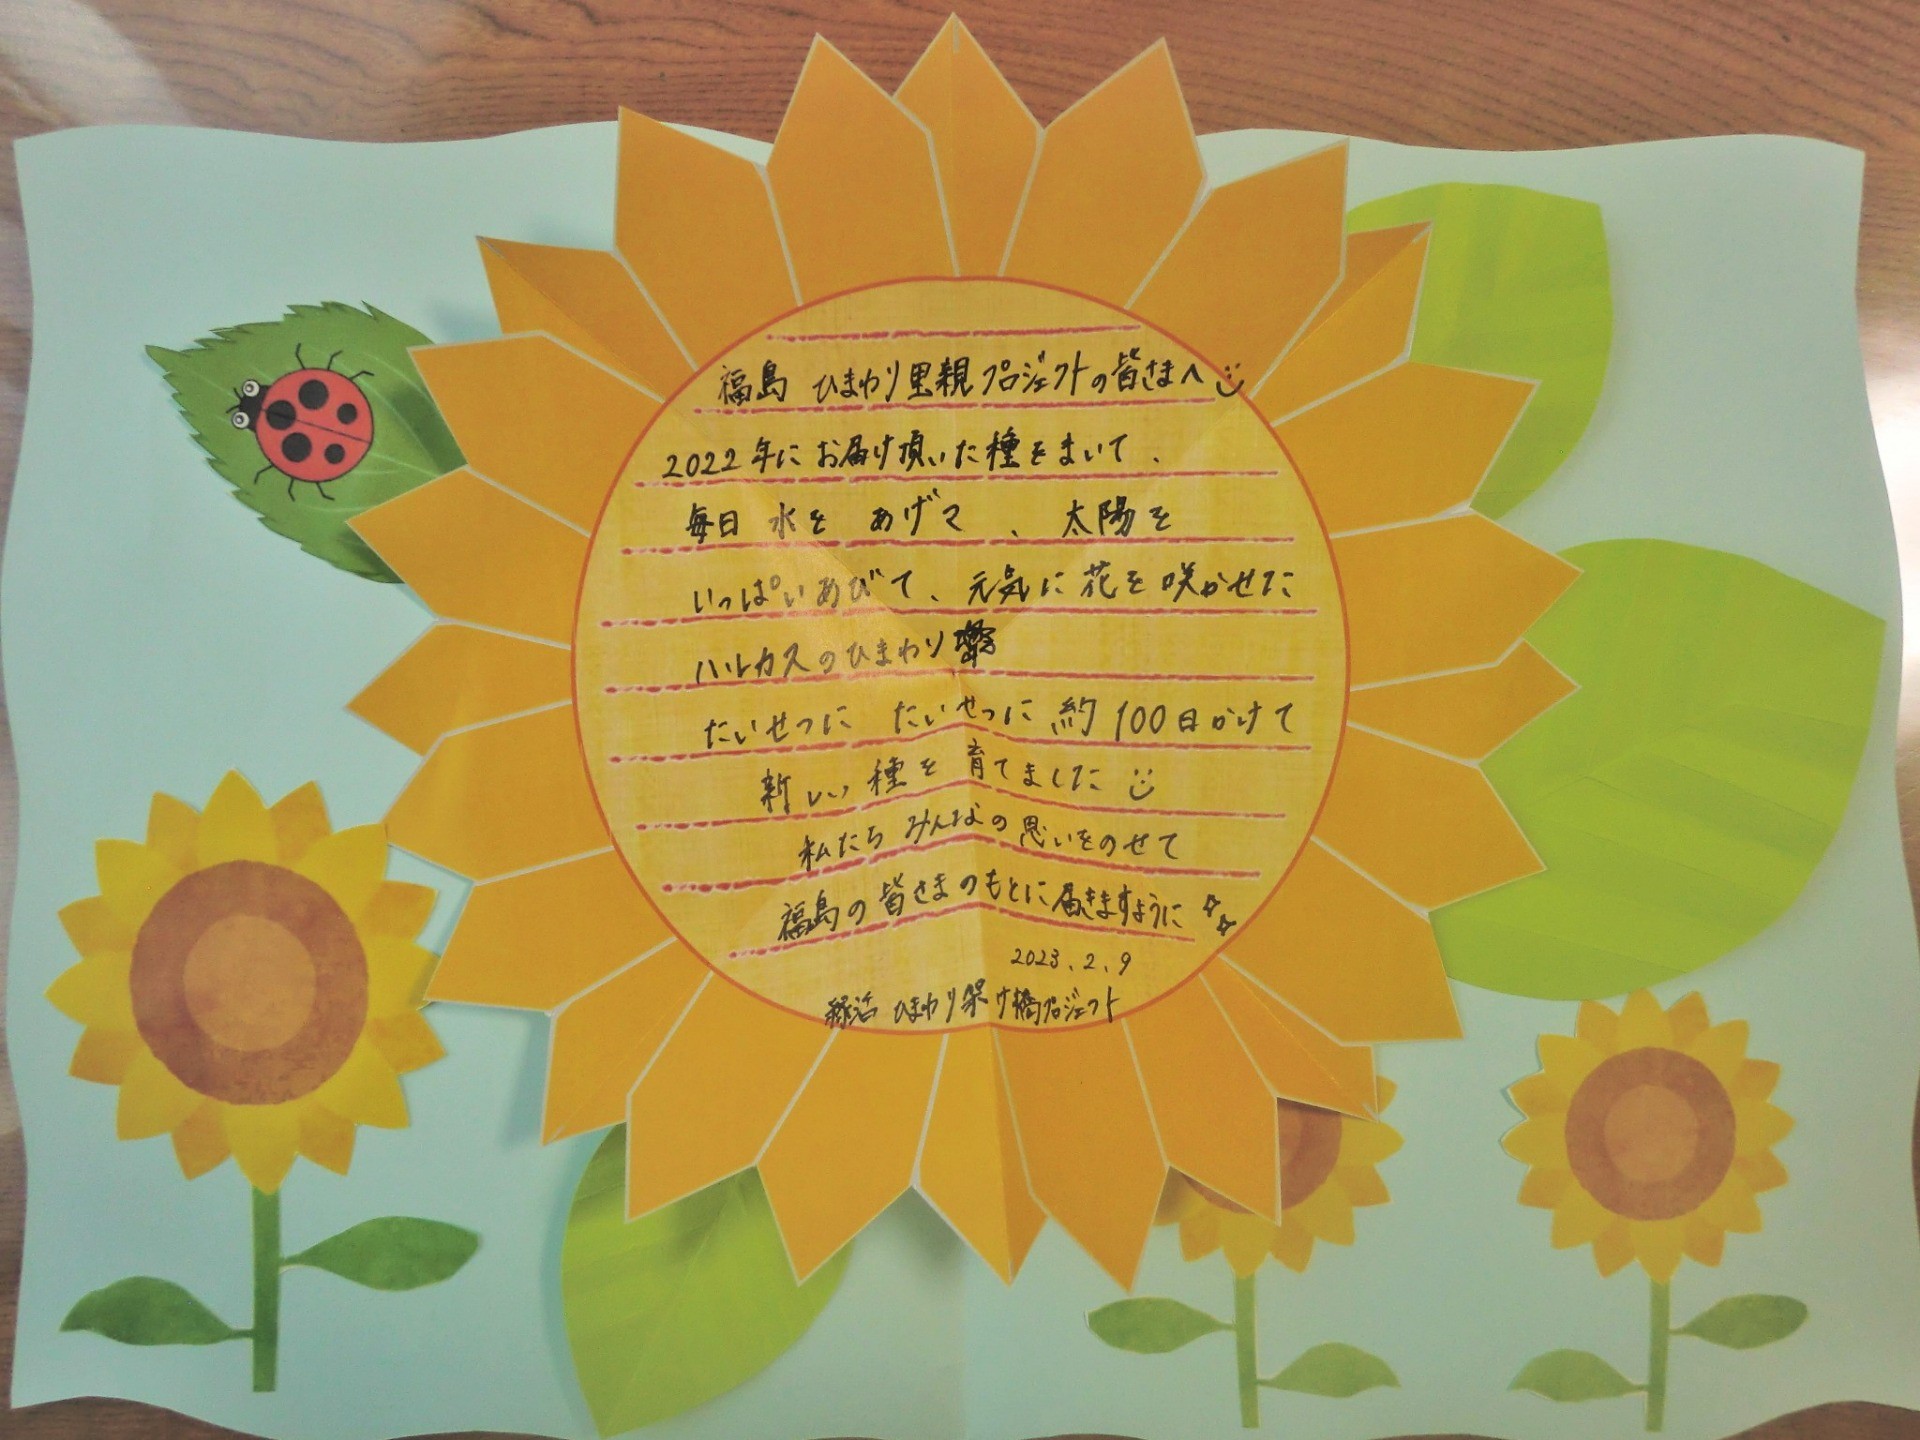 福島 ひまわり里親プロジェクトの皆さまへ
2022年にお届け頂いた種をまいて、
毎日 水を あげて、太陽を
いっぱいあびて、元気に花を咲かせた
ハルカスのひまわり
たいせつに たいせつに 約100日かけて
新しい種を育てました
私たち みんなの思いをのせて
福島の皆さまのもとに届きますように
2023.2.9
縁活 ひまわり架け橋プロジェクト